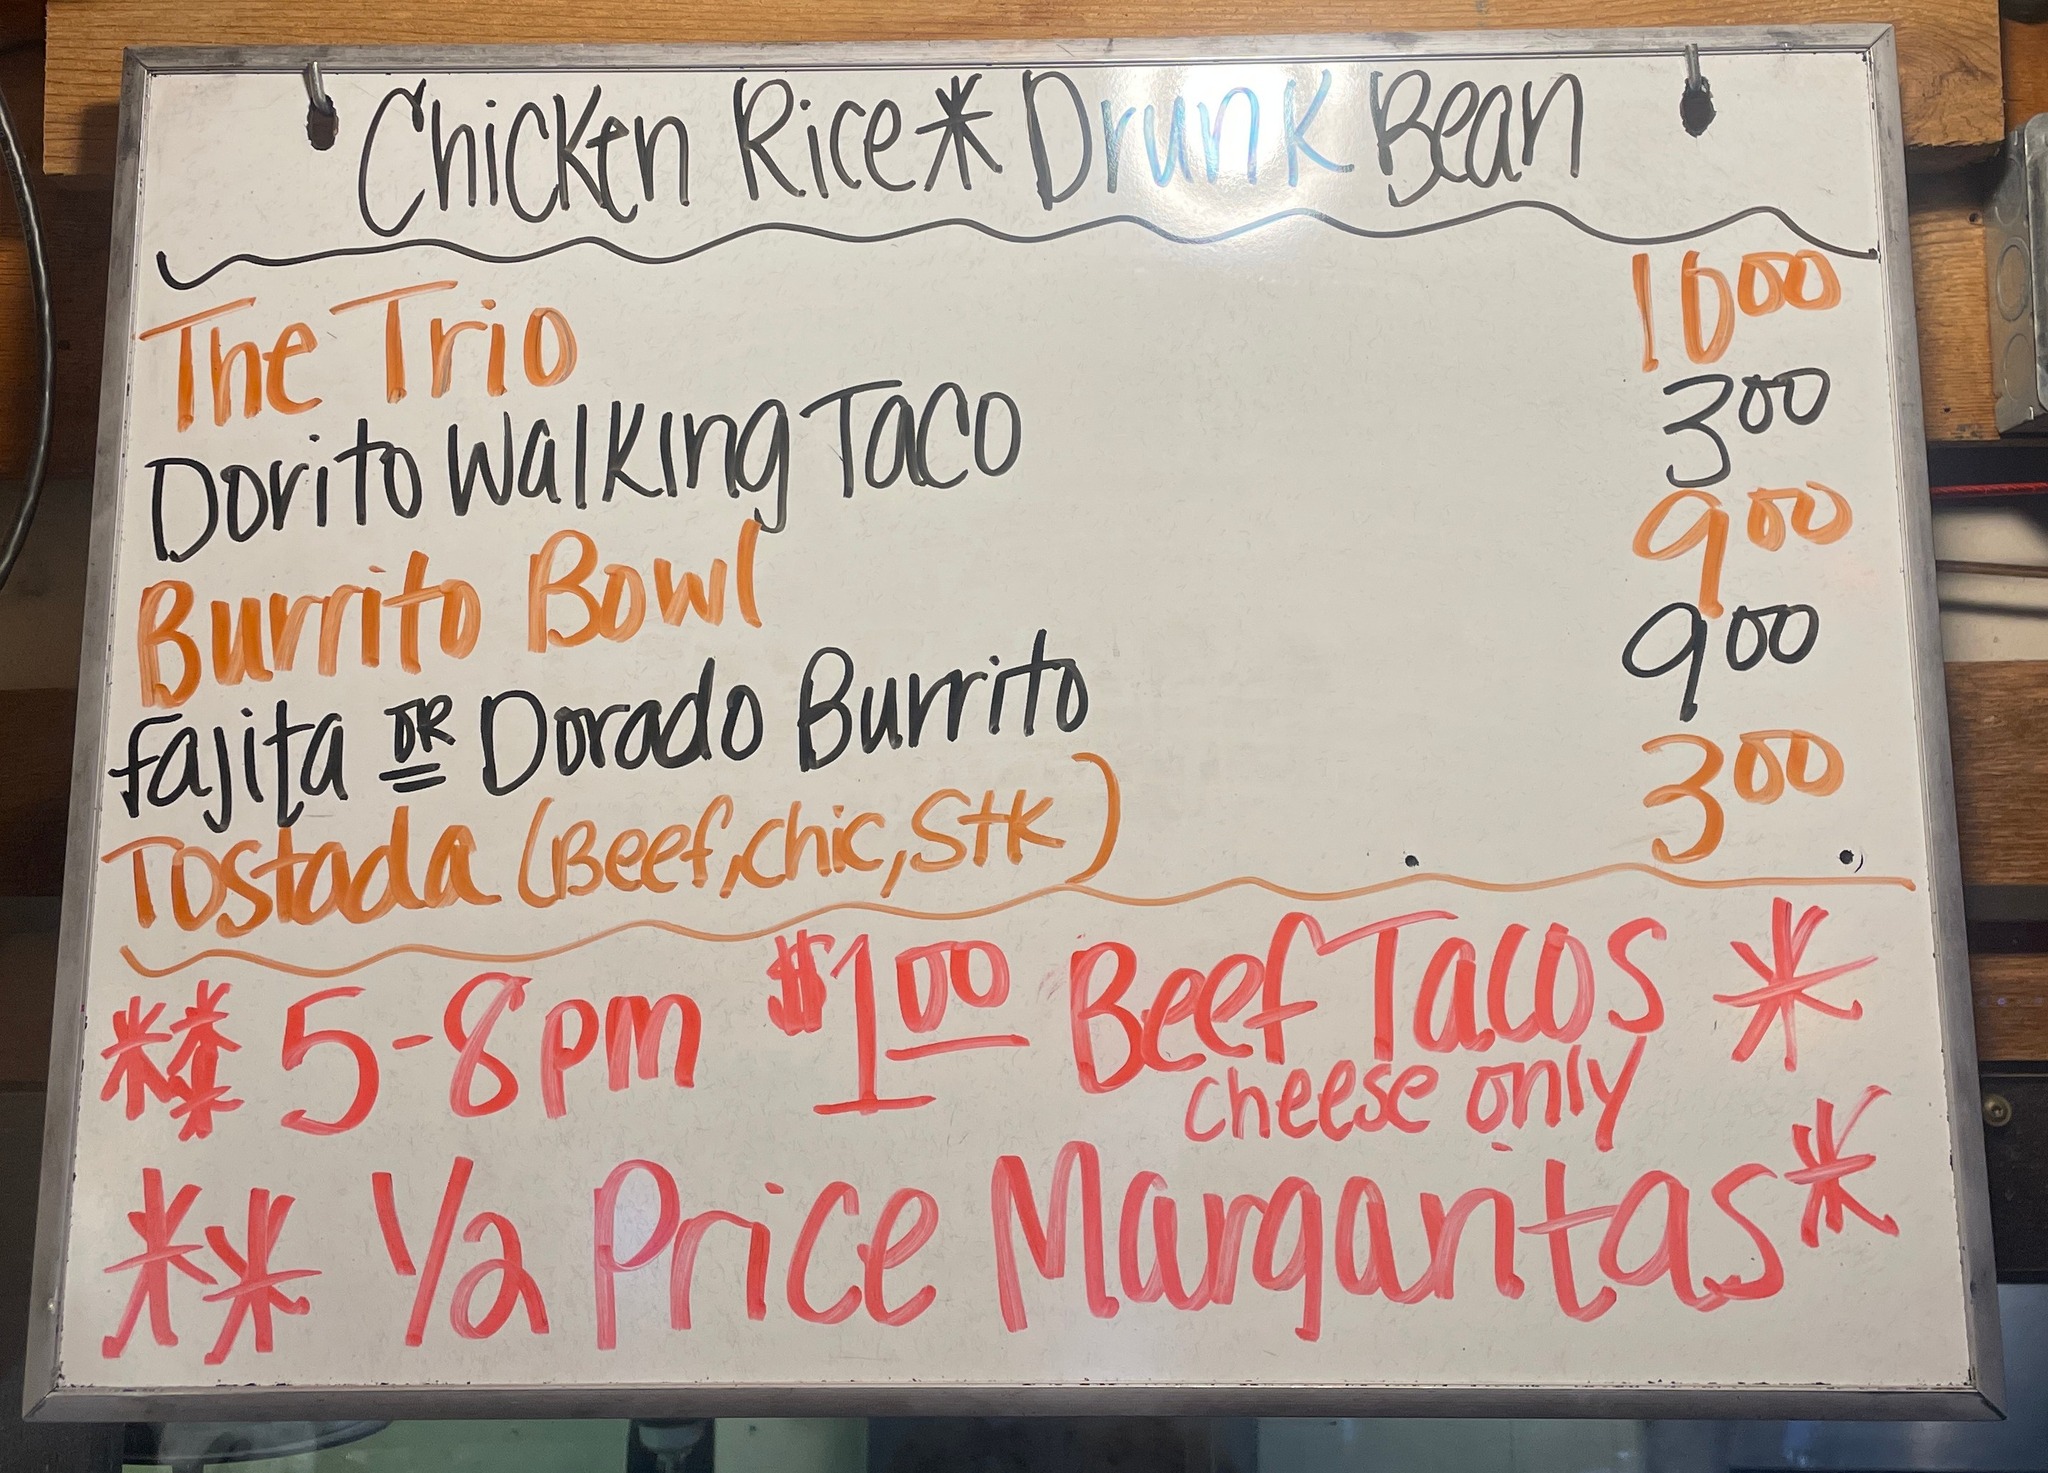 Chicken Rice * Drunk Bean
The Trio 10.00
Dorito Walking Taco 3.00
Burrito Bowl 9.00
Fajita OR Dorado Burrito 9.00
Tostada (Beef, Chic, Stk) 3.00
** 5-8pm $1.00 Beef Tacos *
cheese only
** 1/2 Price Margaritas *